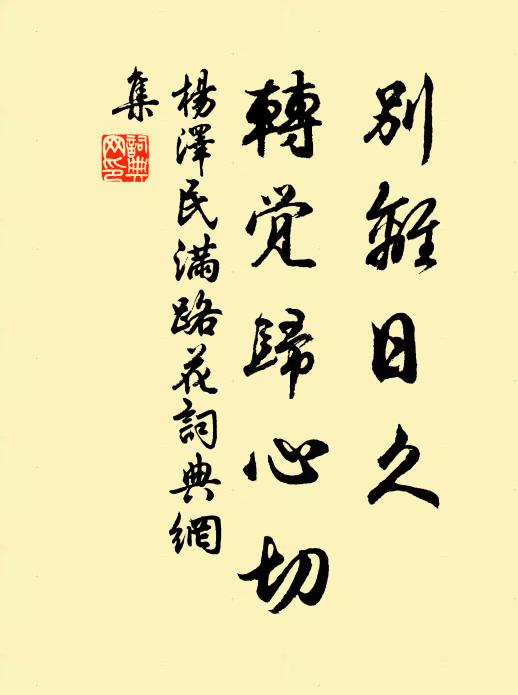 别離日久
轉覺歸心切
楊澤民滿路花詞典網
集
詞典
网印